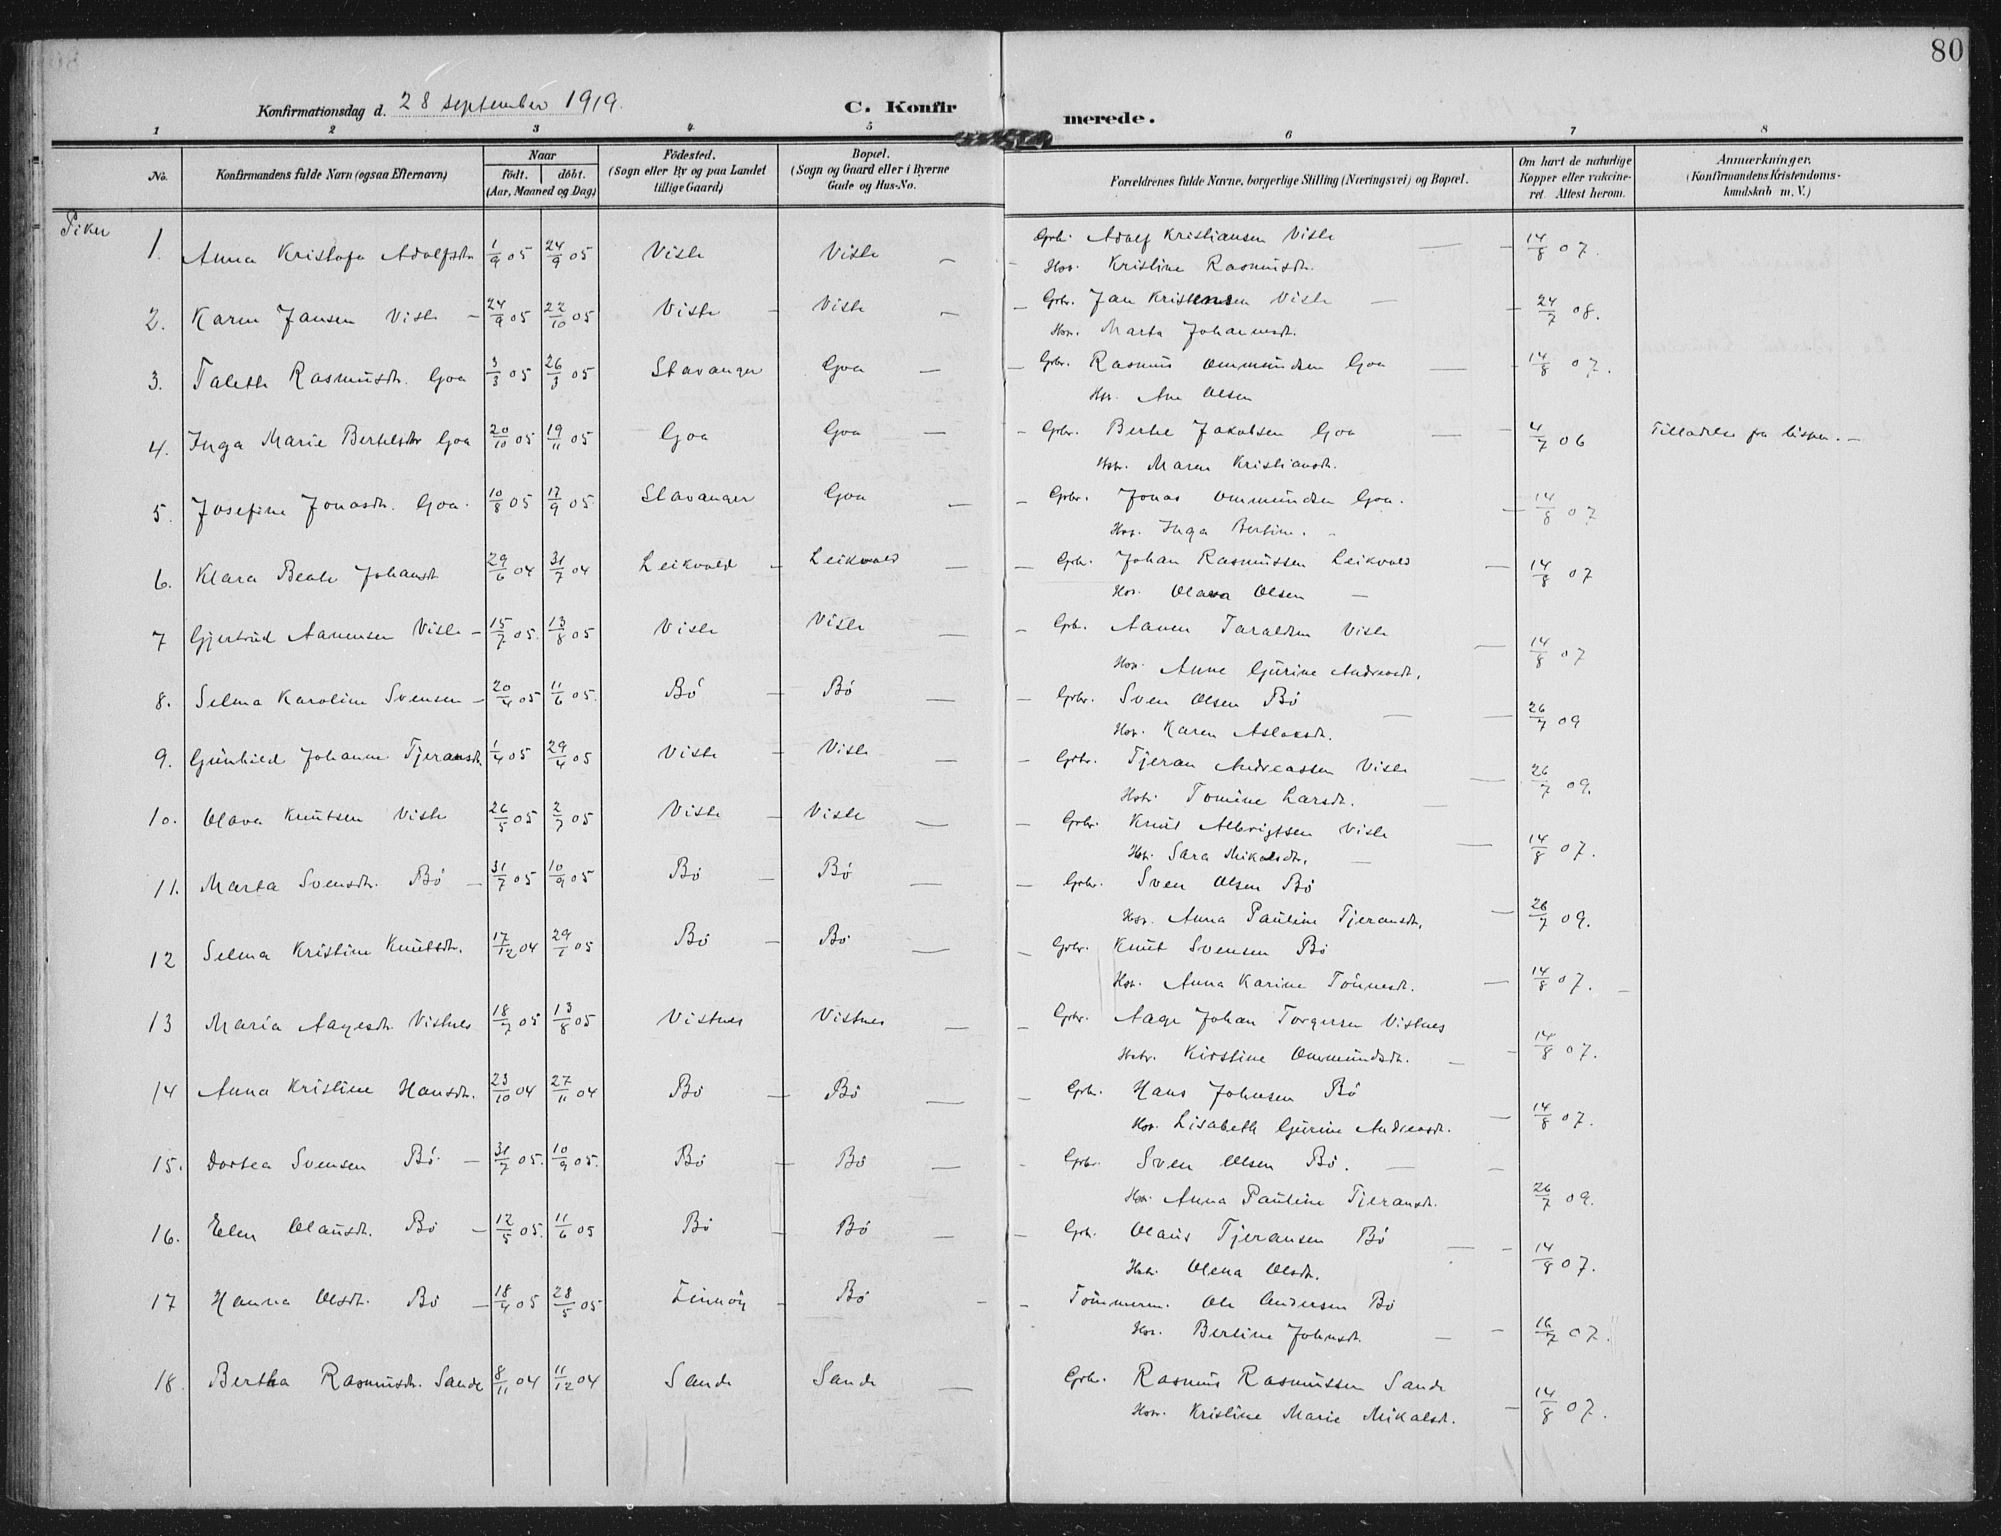 80
Konfirmationsdag d. 28 september 1919.
C. Konfirmerede.
1 2 3 4 5 6 7 8
No.
Konfirmandens fulde Navn (ogsaa Efternavn)
Naar
födt. döbt.
(Aar, Maaned og Dag)
Födested.
(Sogn eller By og paa Landet
tillige Gaard)
Bopæl.
(Sogn og Gaard eller i Byerne
Gade og Hus-No.
Forældrenes fulde Navne, borgerlige Stilling (Næringsvei) og Bopæl.
Om havt de naturlige
Kopper eller vakcine-
ret. Attest herom.
Anmærkninger.
(Konfirmandens Kristendoms-
kundskab m. V.)
Piker
1. Anna Kristofa Adolfsdtr 1/9 05 24/9 05 Viste Viste — Grbr. Adolf Kristiansen Viste — 14/8 07.
Hstr. Kristine Rasmusdtr.
2. Karen Jansen Viste — 24/9 05 22/10 05 Viste — Viste — Grbr. Jan Kristensen Viste — 24/7 08.
Hstr. Marta Johannesdtr.
3. Talette Rasmusdtr. Goa 3/3 05 26/3 05 Stavanger Goa — Grbr. Rasmus Ommundsen Goa — 14/8 07.
Hstr. Ane Olsen
4. Inga Marie Berthesdtr Goa 20/10 05 19/11 05 Goa Goa — Grbr. Berthe Jakobsen Goa — 4/7 06 Tilladelse fra bispen. —
Hstr. Maren Kristiansdtr.
5. Josefine Jonasdtr. Goa. 10/8 05 17/9 05 Stavanger Goa — Grbr. Jonas Ommundsen Goa. — 14/8 07
Hstr. Inga Bertine.
6. Klara Beate Johansdtr 29/6 04 31/7 04 Leikvold — Leikvold — Grbr. Johan Rasmussen Leikvold — 14/8 07
Hstr. Olava Olsen —
7 Gjertrud Aanensen Viste — 15/7 05. 13/8 05 Viste Viste — Grbr. Aanen Taraldsen Viste — 14/8 07
Hstr. Anne Gurine Andreasdtr.
8. Selma Karoline Svensen — 20/4 05 11/6 05. Bö — Bö — Grbr. Sven Olsen Bö — 26/7 09
Hstr. Karen Aslaksdtr.
9. Gunhild Johanne Tjeransdtr 1/4 05 29/4 05 Viste — Viste — Grbr. Tjeran Andreassen Viste — 26/7 09.
Hstr. Tomine Larsdtr. —
10. Olava Knutsen Viste 26/5 05 2/7 05 Viste — Viste — Grbr. Knut Albrigtsen Viste — 14/8 07.
Hstr. Sara Mikalsdtr. —
11. Marta Svensdtr. Bö — 31/7 05 10/9 05 Bö — Bö — Grbr. Sven Olsen Bö
Hstr. Anna Pauline Tjeransdtr. — 26/7 09.
12 Selma Kristine Knutsdtr. 17/12 04 29/1 05 Bö — Bö — Grbr. Knut Svensen Bö
Hstr. Anna Karine Tönnesdtr. — 14/8 07.
13 Maria Aagesdtr. Vistnes 18/7 05 13/8 05 Vistnes Vistnes — Grbr. Aage Johan Torgersen Vistnes
Hstr. Kirstine Ommundsdtr. — 14/8 07.
14 Anna Kristine Hansdtr. 23/10 04 27/11 04 Bö — Bö — Grbr. Hans Johnsen Bö
Hstr. Lisabeth Gurine Andreasdtr. — 14/8 07.
15. Dortea Svensen Bö — 31/7 05. 10/9 05. Bö — Bö — Grbr. Sven Olsen Bö. —
Hstr. Anna Pauline Tjeransdtr. 26/7 09.
16. Elen Olausdtr. Bö — 12/5 05. 11/6 05 Bö — Bö — Grbr. Olaus Tjeransen Bö — 14/8 07.
Hstr. Olena Olsdtr.
17 Hanna Olsdtr. Bö — 18/4 05 28/5 05 Bö — Tömmerm. Ole Andersen Bö
Hstr. Bertine Johnsdtr. — 16/7 07.
18. Bertha Rasmusdtr. Sande 8/11 04 11/12 04 Sande Sande — Grbr. Rasmus Rasmussen Sande
Hstr. Kristine Marie Mikalsdtr. — 14/8 07.